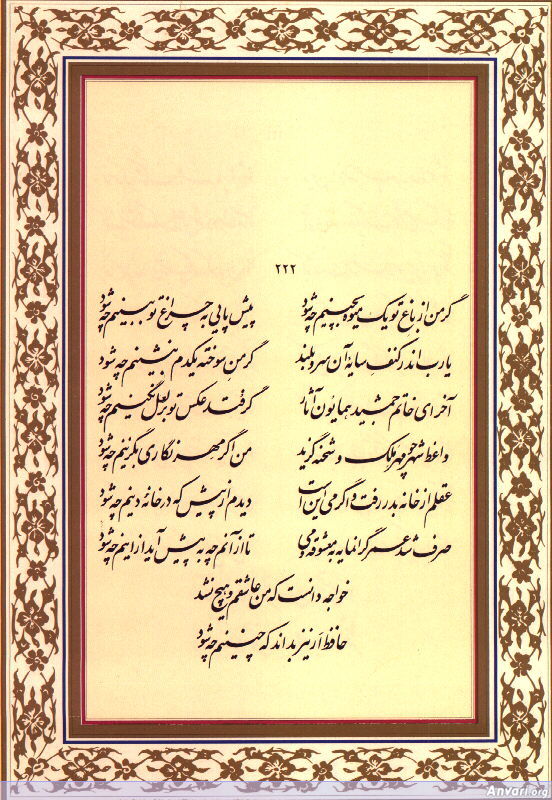 ۲۲۲
گر من از باغ تو یک میوه بچینم چه شود
پیش پایی به چراغ تو ببینم چه شود
یارب اندر کنف سایهٔ آن سرو بلند
گر من سوخته یکدم بنشینم چه شود
آخر ای خاتم جمشید همایون آثار
گر فتد عکس تو بر لعل نگینم چه شود
واعظ شهر چو مهر ملک و شحنه گزید
من اگر مهر نگاری بگزینم چه شود
عقلم از خانه بدر رفت و اگر می این است
دیدم از پیش که در خانهٔ دینم چه شود
صرف شد عمر گرانمایه به معشوقه و می
تا از آنم چه به پیش آید از اینم چه شود
خواجه دانست که من عاشقم و هیچ نشد
حافظ ار نیز بداند که چنینم چه شود
Anvari.org